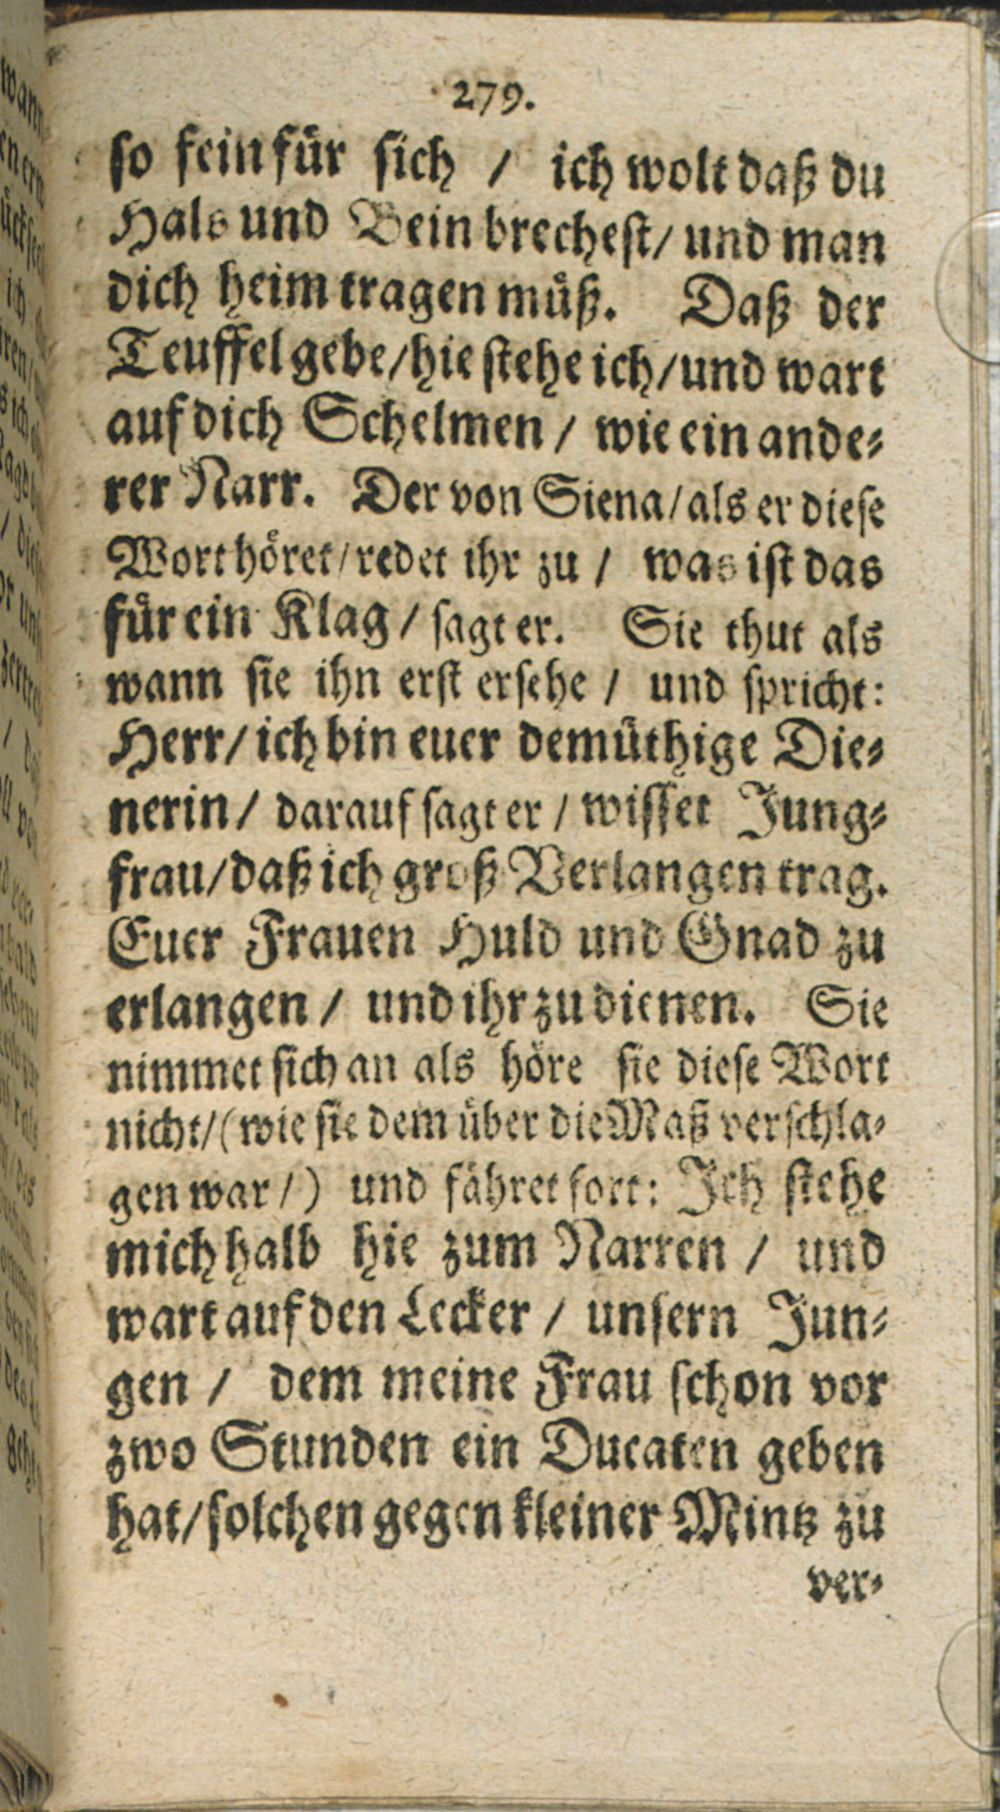 279.
so fein für sich / ich wolt daß du
Hals und Bein brechest/ und man
dich heim tragen müß. Daß der
Teuffel gebe/hie stehe ich/und wart
auf dich Schelmen / wie ein ande-
rer Narr. Der von Siena/als er diese
Wort höret/redet ihr zu / was ist das
für ein Klag / sagt er. Sie thut als
wann sie ihn erst ersehe / und spricht:
Herr/ ich bin euer demüthige Die-
nerin/ darauf sagt er / wisset Jung-
frau/daß ich groß Verlangen trag.
Euer Frauen Huld und Gnad zu
erlangen / und ihr zu dienen. Sie
nimmet sich an als höre sie diese Wort
nicht/(wie sie dem über die Maß verschla-
gen war/) und fähret fort: Ich stehe
mich halb hie zum Narren / und
wart auf den Lecker / unsern Jun-
gen / dem meine Frau schon vor
zwo Stunden ein Ducaten geben
hat/solchen gegen kleiner Mintz zu
ver-